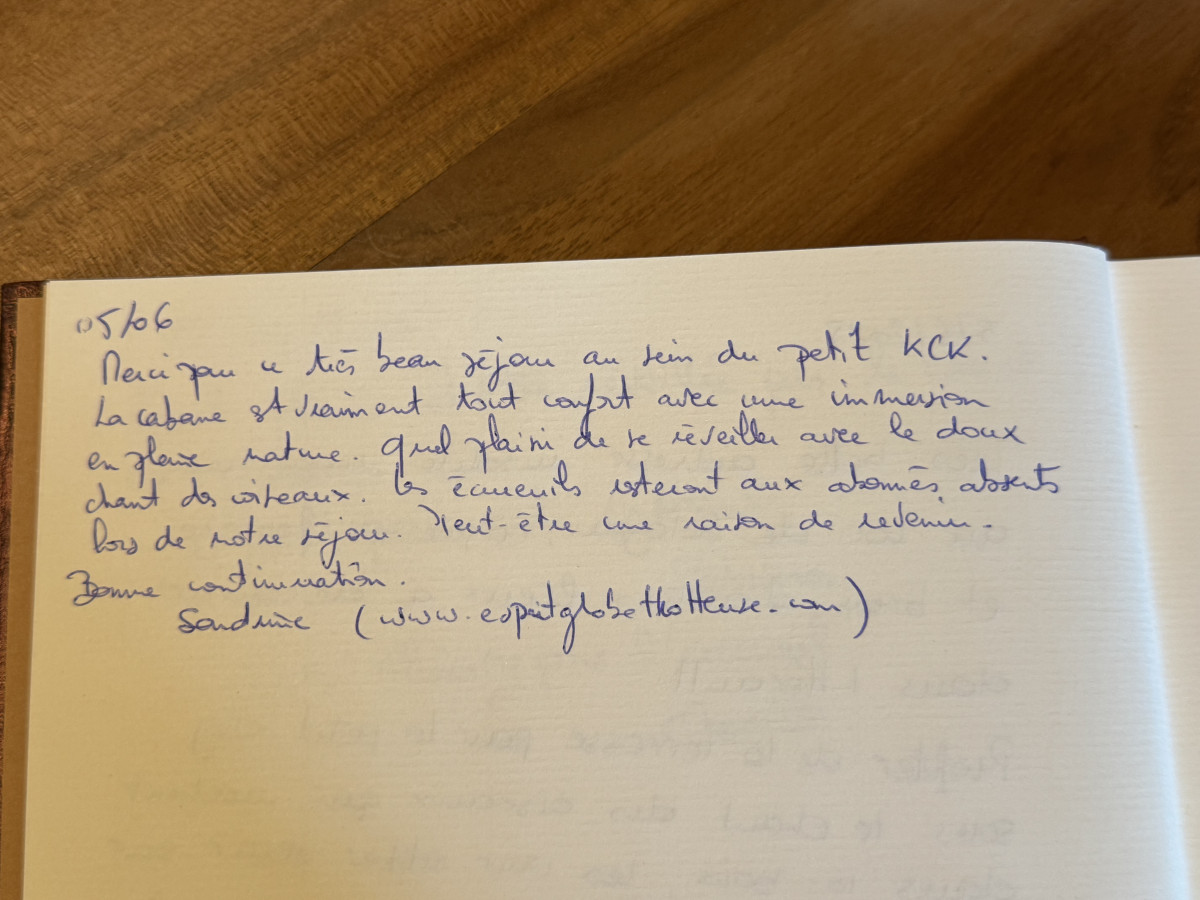 05/06
Merci pour ce très beau séjour au sein du petit KCK.
La cabane est vraiment tout confort avec une immersion
en pleine nature. Quel plaisir de se réveiller avec le doux
chant des oiseaux. Les écureuils resteront aux abonnés absents
lors de notre séjour. Peut-être une raison de revenir.
Bonne continuation.
Sandrine (www.espritglobetrotteuse.com)